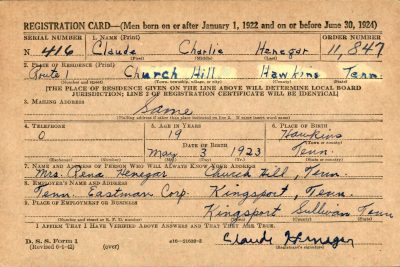 REGISTRATION CARD—(Men born on or after January 1, 1922 and on or before June 30, 1924)
SERIAL NUMBER 1. NAME (Print) ORDER NUMBER
N 416 Claude Charlie Henegar 11,847
(First) (Middle) (Last)
2. PLACE OF RESIDENCE (Print)
Route 1 Church Hill, Hawkins Tenn.
(Number and street) (Town, township, village, or city) (County) (State)
[THE PLACE OF RESIDENCE GIVEN ON THE LINE ABOVE WILL DETERMINE LOCAL BOARD
JURISDICTION; LINE 2 OF REGISTRATION CERTIFICATE WILL BE IDENTICAL]
3. MAILING ADDRESS
Same
[Mailing address if other than place indicated on line 2. If same insert word same]
4. TELEPHONE 5. AGE IN YEARS 6. PLACE OF BIRTH
0 19 Hawkins
DATE OF BIRTH (Town or county)
May 3 1923 Tenn.
(Mo.) (Day) (Yr.) (State or country)
7. NAME AND ADDRESS OF PERSON WHO WILL ALWAYS KNOW YOUR ADDRESS
Mrs. Rena Henegar Church Hill, Tenn.
8. EMPLOYER'S NAME AND ADDRESS
Tenn. Eastman Corp. Kingsport, Tenn.
9. PLACE OF EMPLOYMENT OR BUSINESS
Kingsport Sullivan Tenn
(Number and street or R. F. D. number) (Town) (County) (State)
I AFFIRM THAT I HAVE VERIFIED ABOVE ANSWERS AND THAT THEY ARE TRUE.
D. S. S. Form 1
(Revised 6-9-42) (over) Claude Henegar